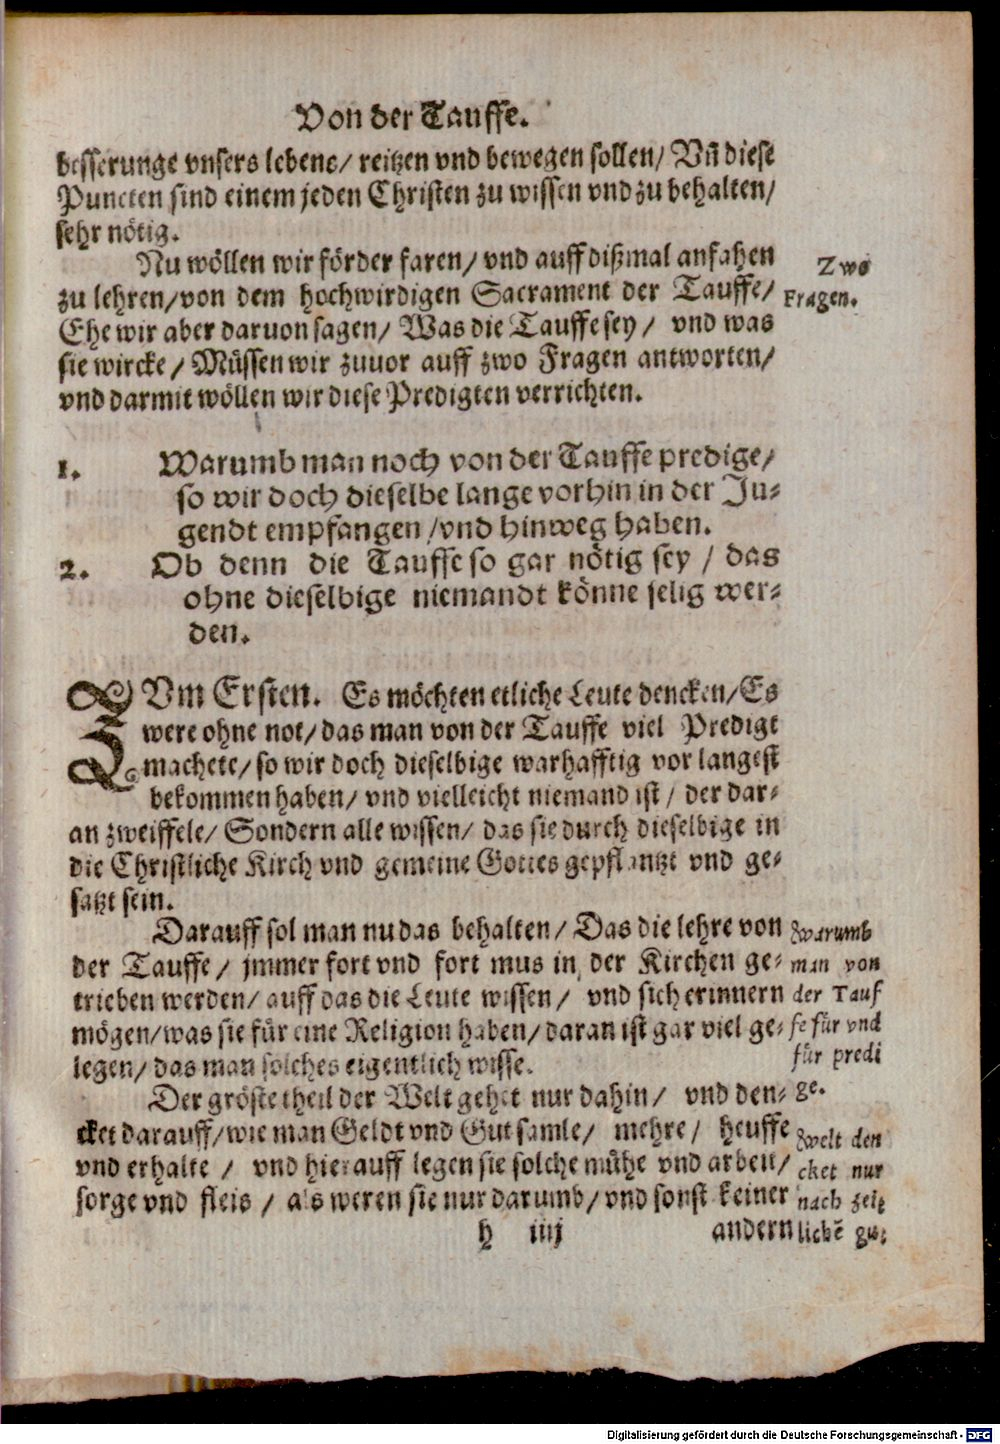 Von der Tauffe.
besserunge vnsers lebens/ reitzen vnd bewegen sollen/ Vñ diese
Puncten sind einem jeden Christen zu wissen vnd zu behalten/
sehr nötig.
Nu wöllen wir förder faren/ vnd auff dißmal anfahen
zu lehren/ von dem hochwirdigen Sacrament der Tauffe/
Ehe wir aber daruon sagen/ Was die Tauffe sey/ vnd was
sie wircke/ Müssen wir zuuor auff zwo Fragen antworten/
vnd darmit wöllen wir diese Predigten verrichten.
Zwo
Fragen.
1. Warumb man noch von der Tauffe predige/
so wir doch dieselbe lange vorhin in der Ju-
gendt empfangen/ vnd hinweg haben.
2. Ob denn die Tauffe so gar nötig sey/ das
ohne dieselbige niemandt könne selig wer-
den.
ZVm Ersten. Es möchten etliche Leute dencken/ Es
were ohne not/ das man von der Tauffe viel Predigt
machete/ so wir doch dieselbige warhafftig vor langest
bekommen haben/ vnd vielleicht niemand ist/ der dar-
an zweiffele/ Sondern alle wissen/ das sie durch dieselbige in
die Christliche Kirch vnd gemeine Gottes gepflantzt vnd ge-
satzt sein.
Darauff sol man nu das behalten/ Das die lehre von
der Tauffe/ jmmer fort vnd fort mus in der Kirchen ge-
trieben werden/ auff das die Leute wissen/ vnd sich erinnern
mögen/ was sie für eine Religion haben/ daran ist gar viel ge-
legen/ das man solches eigentlich wisse.
Warumb
man von
der Tauf
fe für vnd
für predi
ge.
Der gröste theil der Welt gehet nur dahin/ vnd den-
cket darauff/ wie man Geldt vnd Gut samle/ mehre/ heuffe
vnd erhalte/ vnd hierauff legen sie solche mühe vnd arbeit/
sorge vnd fleis/ als weren sie nur darumb/ vnd sonst keiner
Welt den
cket nur
nach zeit
lichē gu-
h iiij
andern
Digitalisierung gefördert durch die Deutsche Forschungsgemeinschaft - DFG